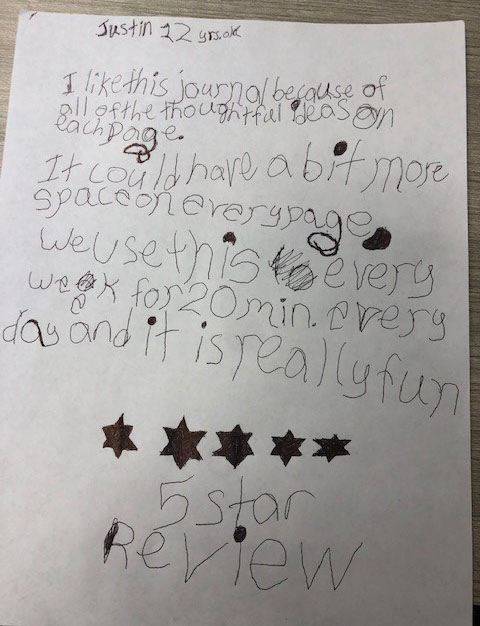 Justin 12 yrs.old
I like this journal because of
all of the thoughtful ideas on
each page.
It could have a bit more
space on every page.
We use this every
week for 20 min. every
day and it is really fun
5 star
Review